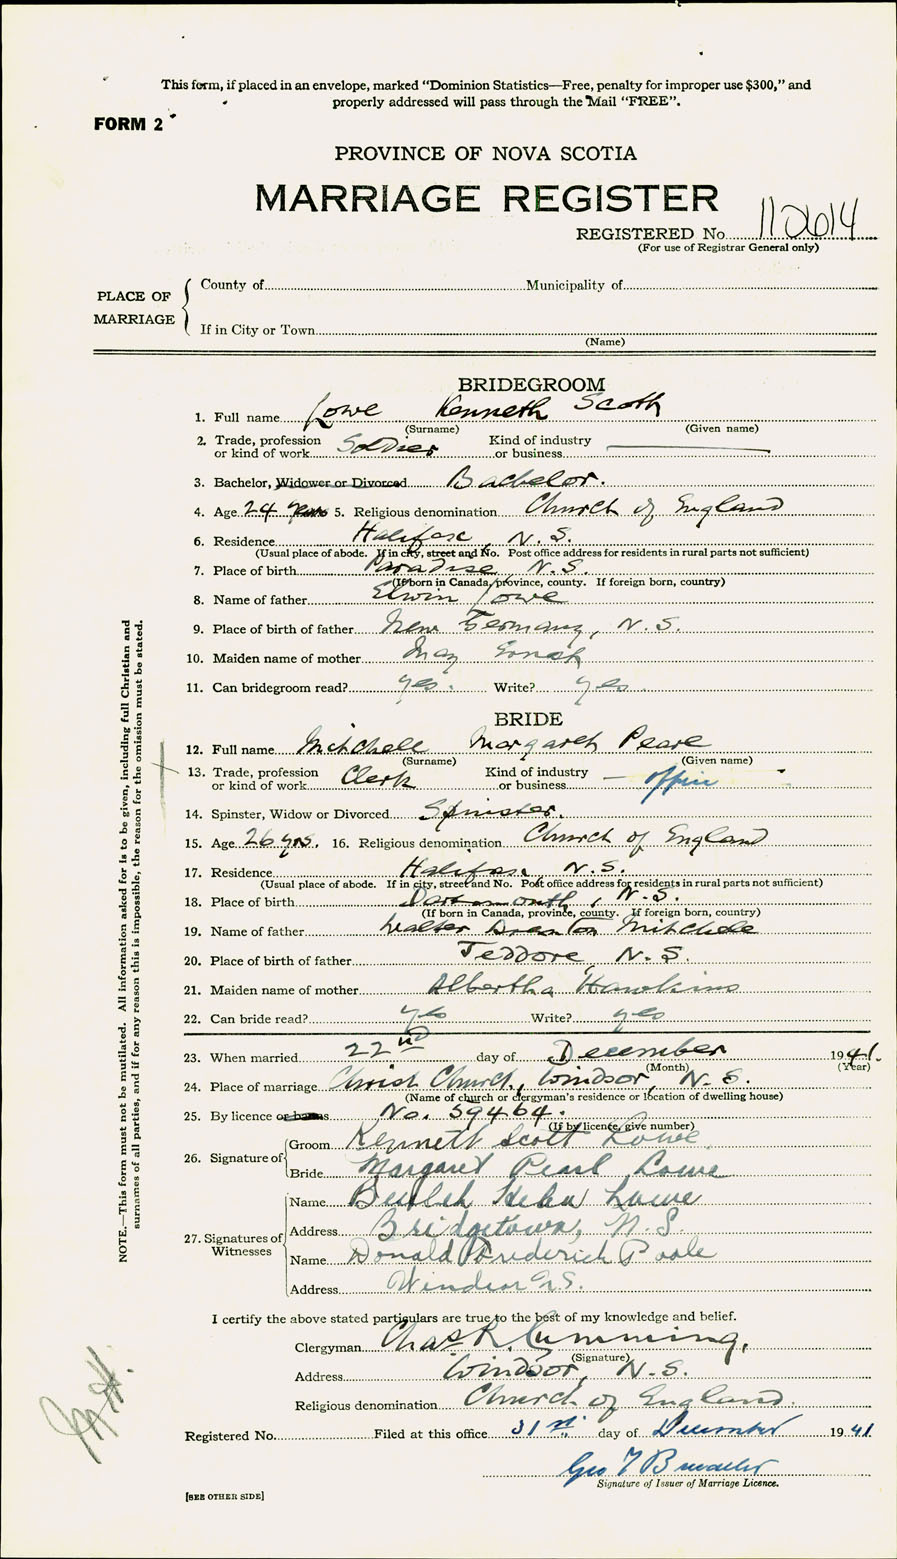 This form, if placed in an envelope, marked "Dominion Statistics—Free, penalty for improper use $300," and
properly addressed will pass through the Mail "FREE".
FORM 2
PROVINCE OF NOVA SCOTIA
MARRIAGE REGISTER
REGISTERED No. 112614
(For use of Registrar General only)
PLACE OF MARRIAGE
County of Municipality of
If in City or Town
(Name)
BRIDEGROOM
1. Full name Lowe Kenneth Scott
(Surname) (Given name)
2. Trade, profession or kind of work Soldier Kind of industry or business
3. Bachelor, Widower or Divorced Bachelor.
4. Age 24 years 5. Religious denomination Church of England
6. Residence Halifax, N.S.
(Usual place of abode. If in city, street and No. Post office address for residents in rural parts not sufficient)
7. Place of birth Paradise, N.S.
(If born in Canada, province, county. If foreign born, country)
8. Name of father Elwin Lowe
9. Place of birth of father New Germany, N.S.
10. Maiden name of mother May
11. Can bridegroom read? yes. Write? yes
BRIDE
12. Full name Mitchell Margaret Pearl
(Surname) (Given name)
13. Trade, profession or kind of work Clerk Kind of industry or business — office
14. Spinster, Widow or Divorced Spinster.
15. Age 26 yrs. 16. Religious denomination Church of England
17. Residence Halifax, N.S.
(Usual place of abode. If in city, street and No. Post office address for residents in rural parts not sufficient)
18. Place of birth Dartmouth, N.S.
(If born in Canada, province, county. If foreign born, country)
19. Name of father Walter Mitchell
20. Place of birth of father Jeddore, N.S.
21. Maiden name of mother Albertha Hawkins
22. Can bride read? yes Write? yes
23. When married 22nd day of December 1941.
(Month) (Year)
24. Place of marriage Christ Church, Windsor, N.S.
(Name of church or clergyman's residence or location of dwelling house)
25. By licence or banns No. 59464.
(If by licence, give number)
26. Signature of Groom Kenneth Scott Lowe
Bride Margaret Pearl Lowe
27. Signatures of Witnesses Name Beulah Lowe
Address Bridgetown, N.S.
Name Donald Frederick Poole
Address Windsor N.S.
I certify the above stated particulars are true to the best of my knowledge and belief.
Clergyman Chas R. Cumming,
(Signature)
Address Windsor, N.S.
Religious denomination Church of England.
Registered No. Filed at this office 31st day of December 1941
Geo
Signature of Issuer of Marriage Licence.
[SEE OTHER SIDE]
NOTE.—This form must not be mutilated. All information asked for is to be given, including full Christian and
surnames of all parties, and if for any reason this is impossible, the reason for the omission must be stated.